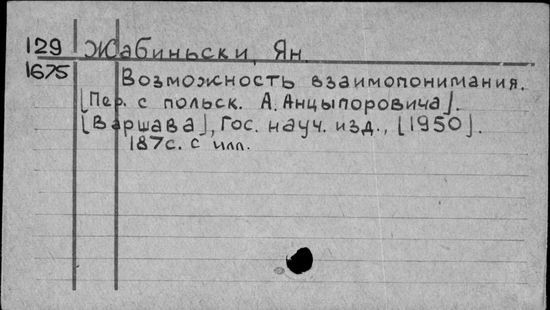 129 Жабиньски, Ян
1675 Возможность взаимопонимания.
[Пер. с польск. А. Анцыпоровича].
[Варшава], Гос. науч. изд., [1950].
187с. с илл.